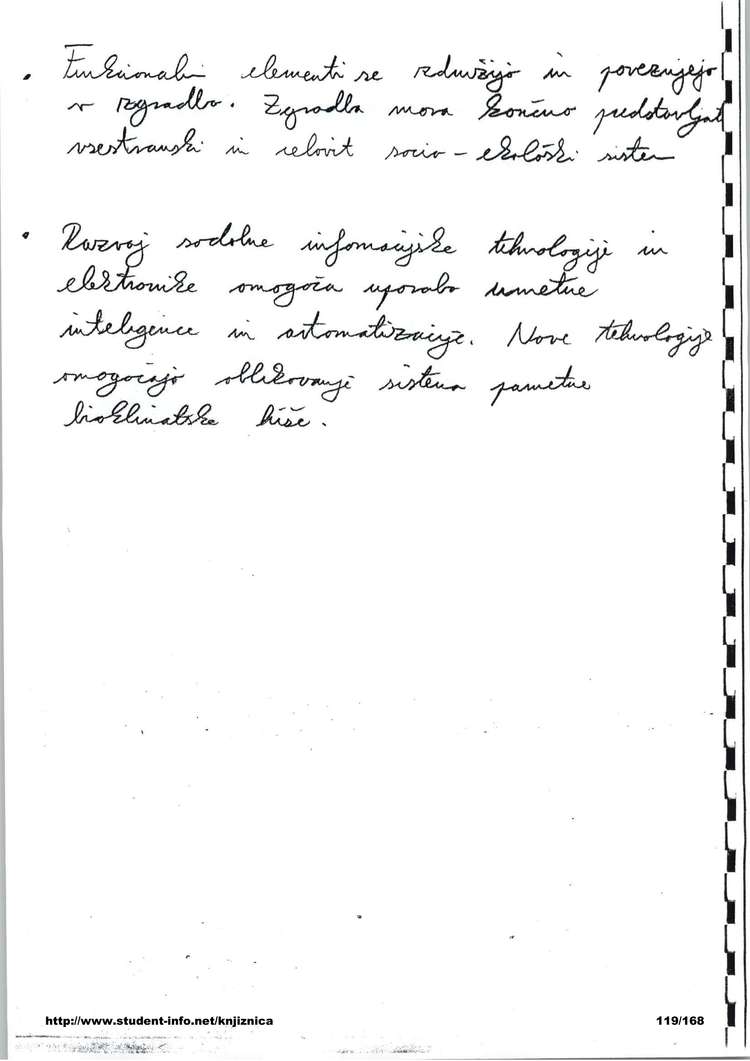 • Funkcionalni elementi se združijo in povezujejo
v zgradbo. Zgradba mora končno predstavljat
vsestranski in celovit socio - ekološki sistem
• Razvoj sodobne informacijske tehnologije in
elektronike omogoča uporabo umetne
inteligence in avtomatizacije. Nove tehnologije
omogočajo oblikovanje sistema pametne
bioklimatske hiše.
http://www.student-info.net/knjiznica 119/168